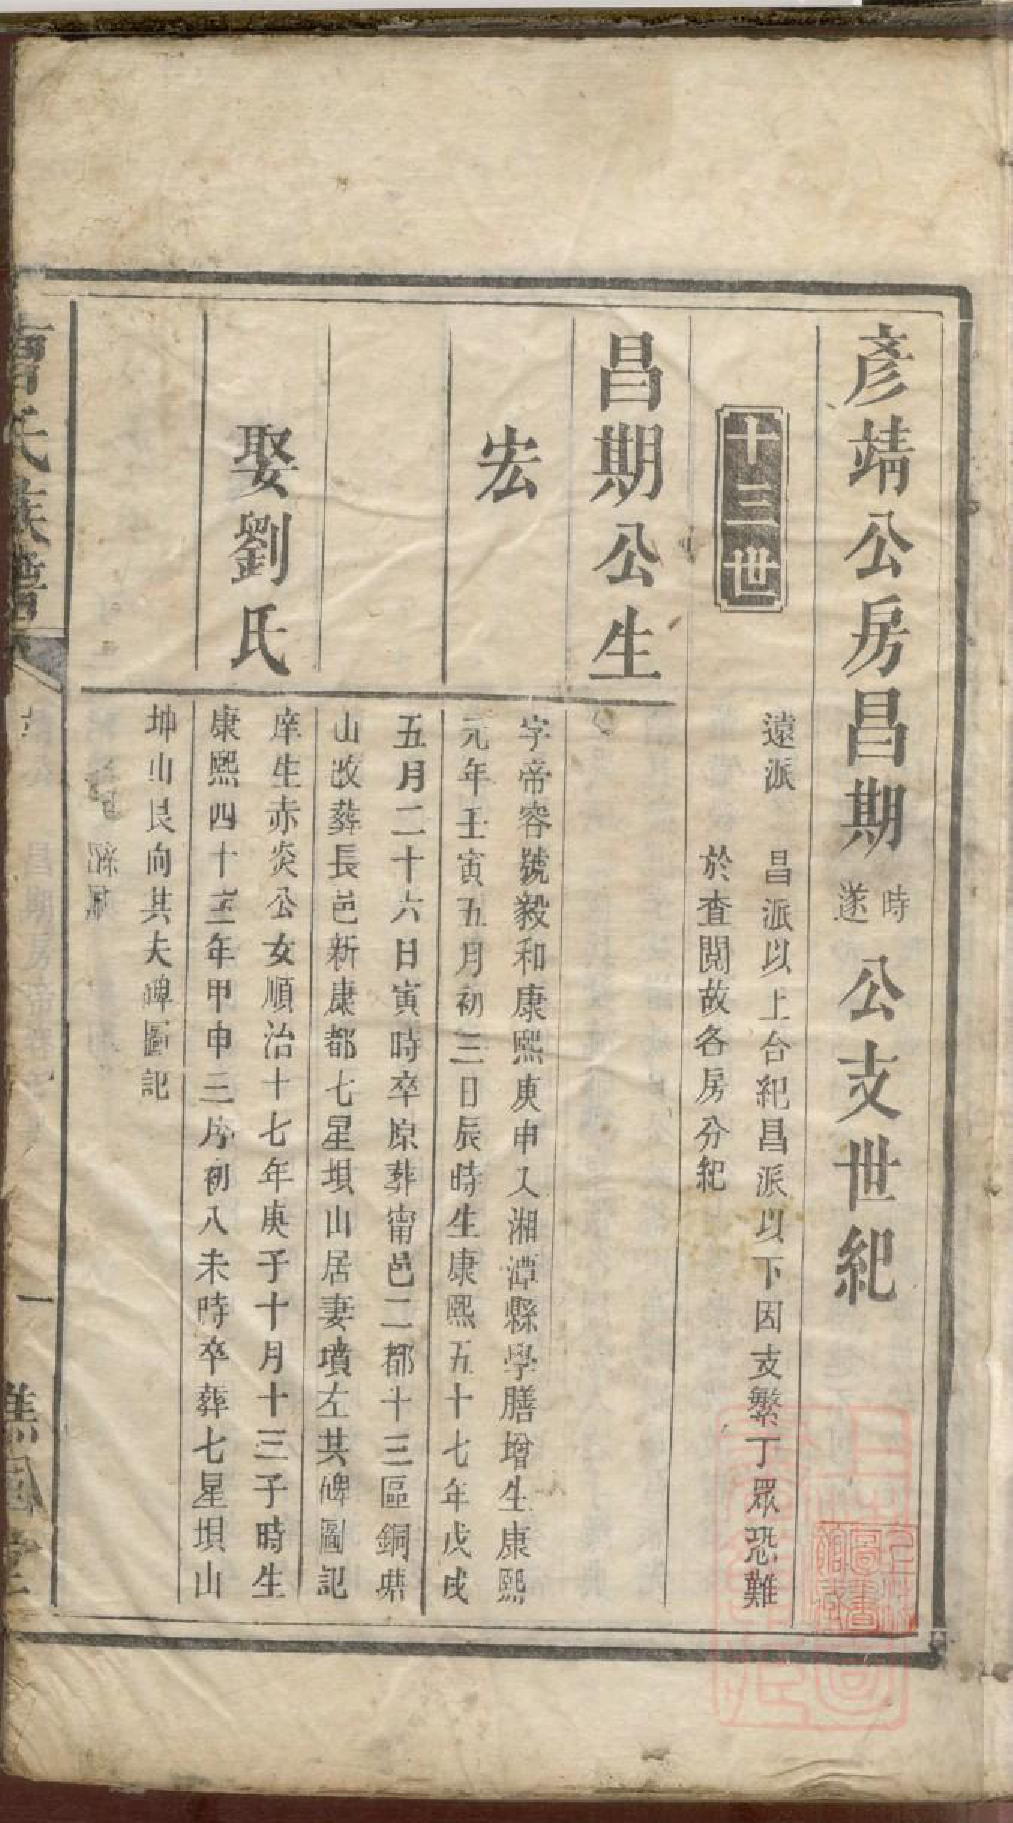 彥靖公房昌期時遂公支世紀
十三世
遠派 昌派以上合紀昌派以下因支繁丁眾恐難
於查閱故各房分紀
昌期公生
宏
字帝容號毅和康熙庚申入湘潭縣學膳增生康熙
元年壬寅五月初三日辰時生康熙五十七年戊戌
五月二十六日寅時卒原葬甯邑二都十三區銅鼎
山改葬長邑新康都七星垻山居妻墳左其碑圖記
娶劉氏
庠生赤炎公女順治十七年庚子十月十三子時生
康熙四十三年甲申三月初八未時卒葬七星垻山
坤山艮向其夫碑圖記
氏族譜
一